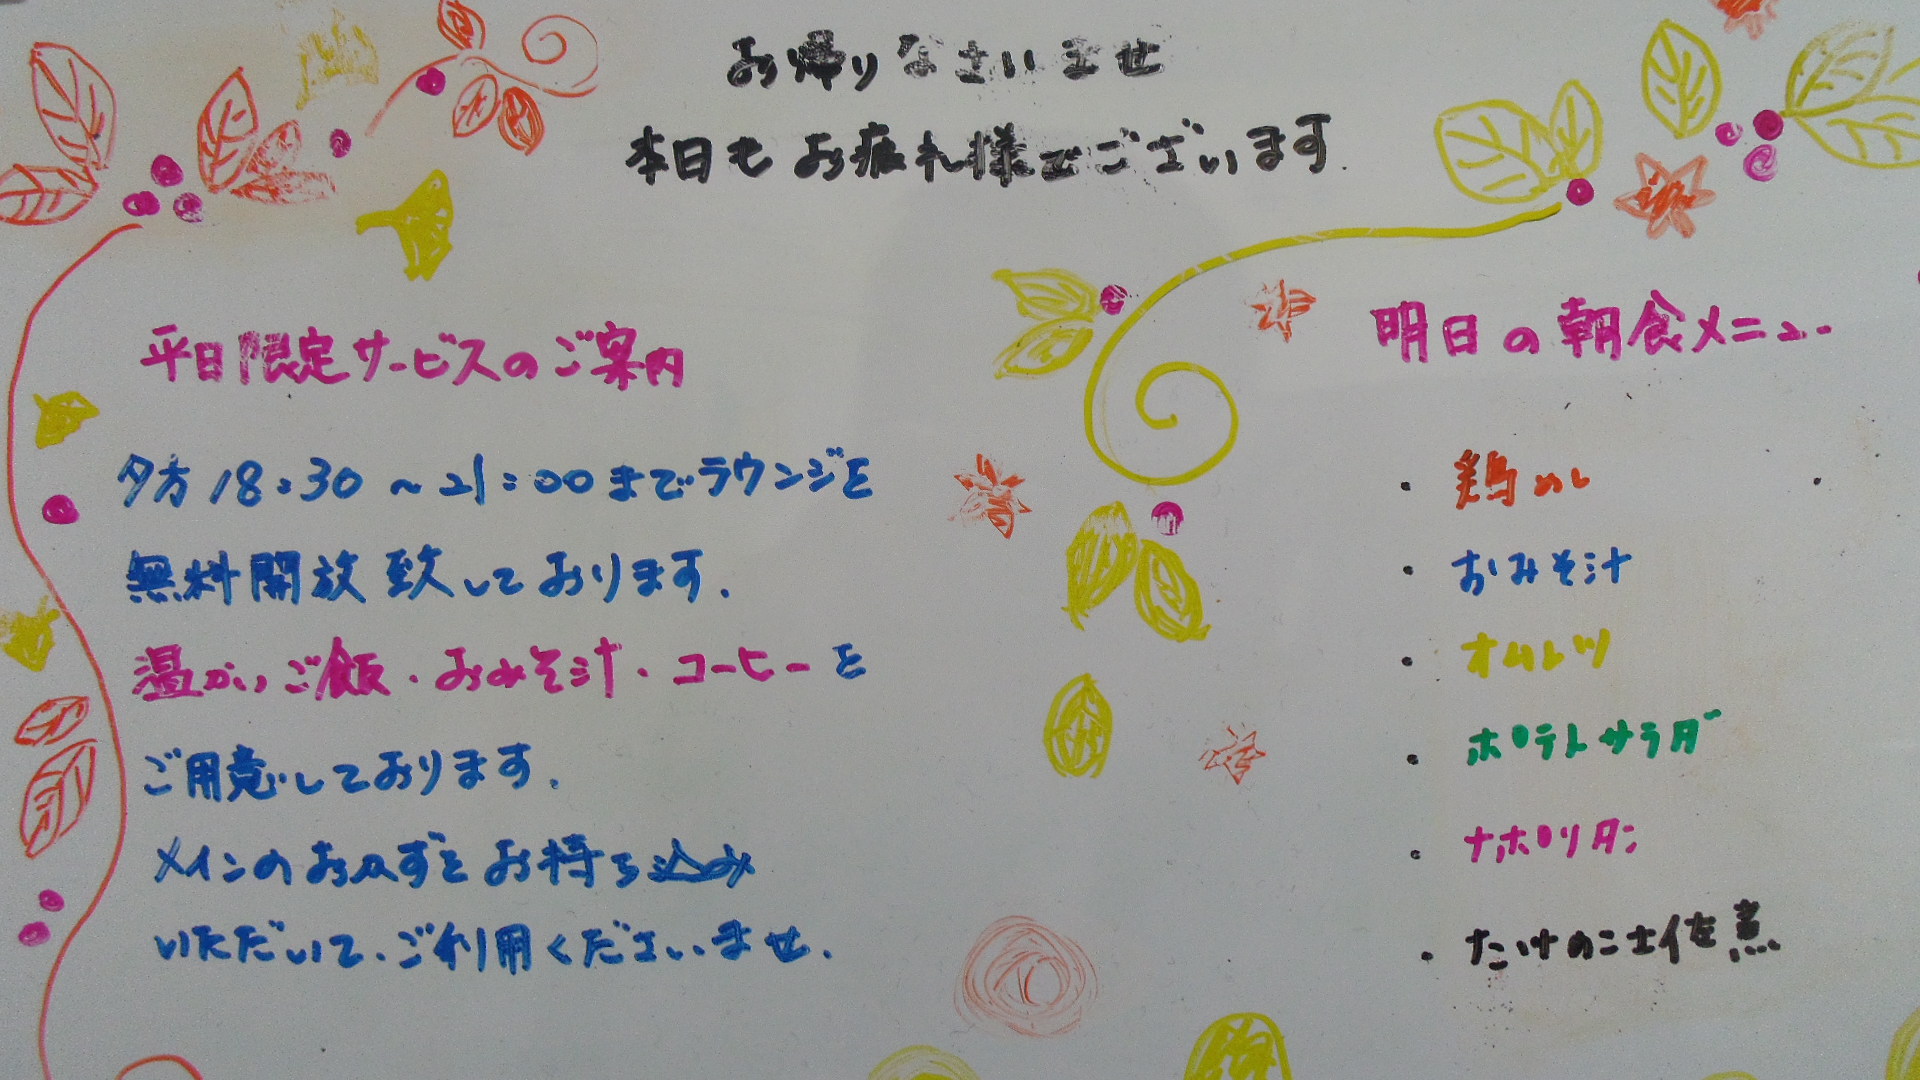 お帰りなさいませ
本日もお疲れ様でございます.
平日限定サービスのご案内
夕方18:30～21:00までラウンジを
無料開放致しております.
温かいご飯・おみそ汁・コーヒーを
ご用意しております.
メインのおかずをお持ち込み
いただいて、ご利用くださいませ.
明日の朝食メニュー
・鶏めし
・おみそ汁
・オムレツ
・ポテトサラダ
・ナポリタン
・たけのこ土佐煮